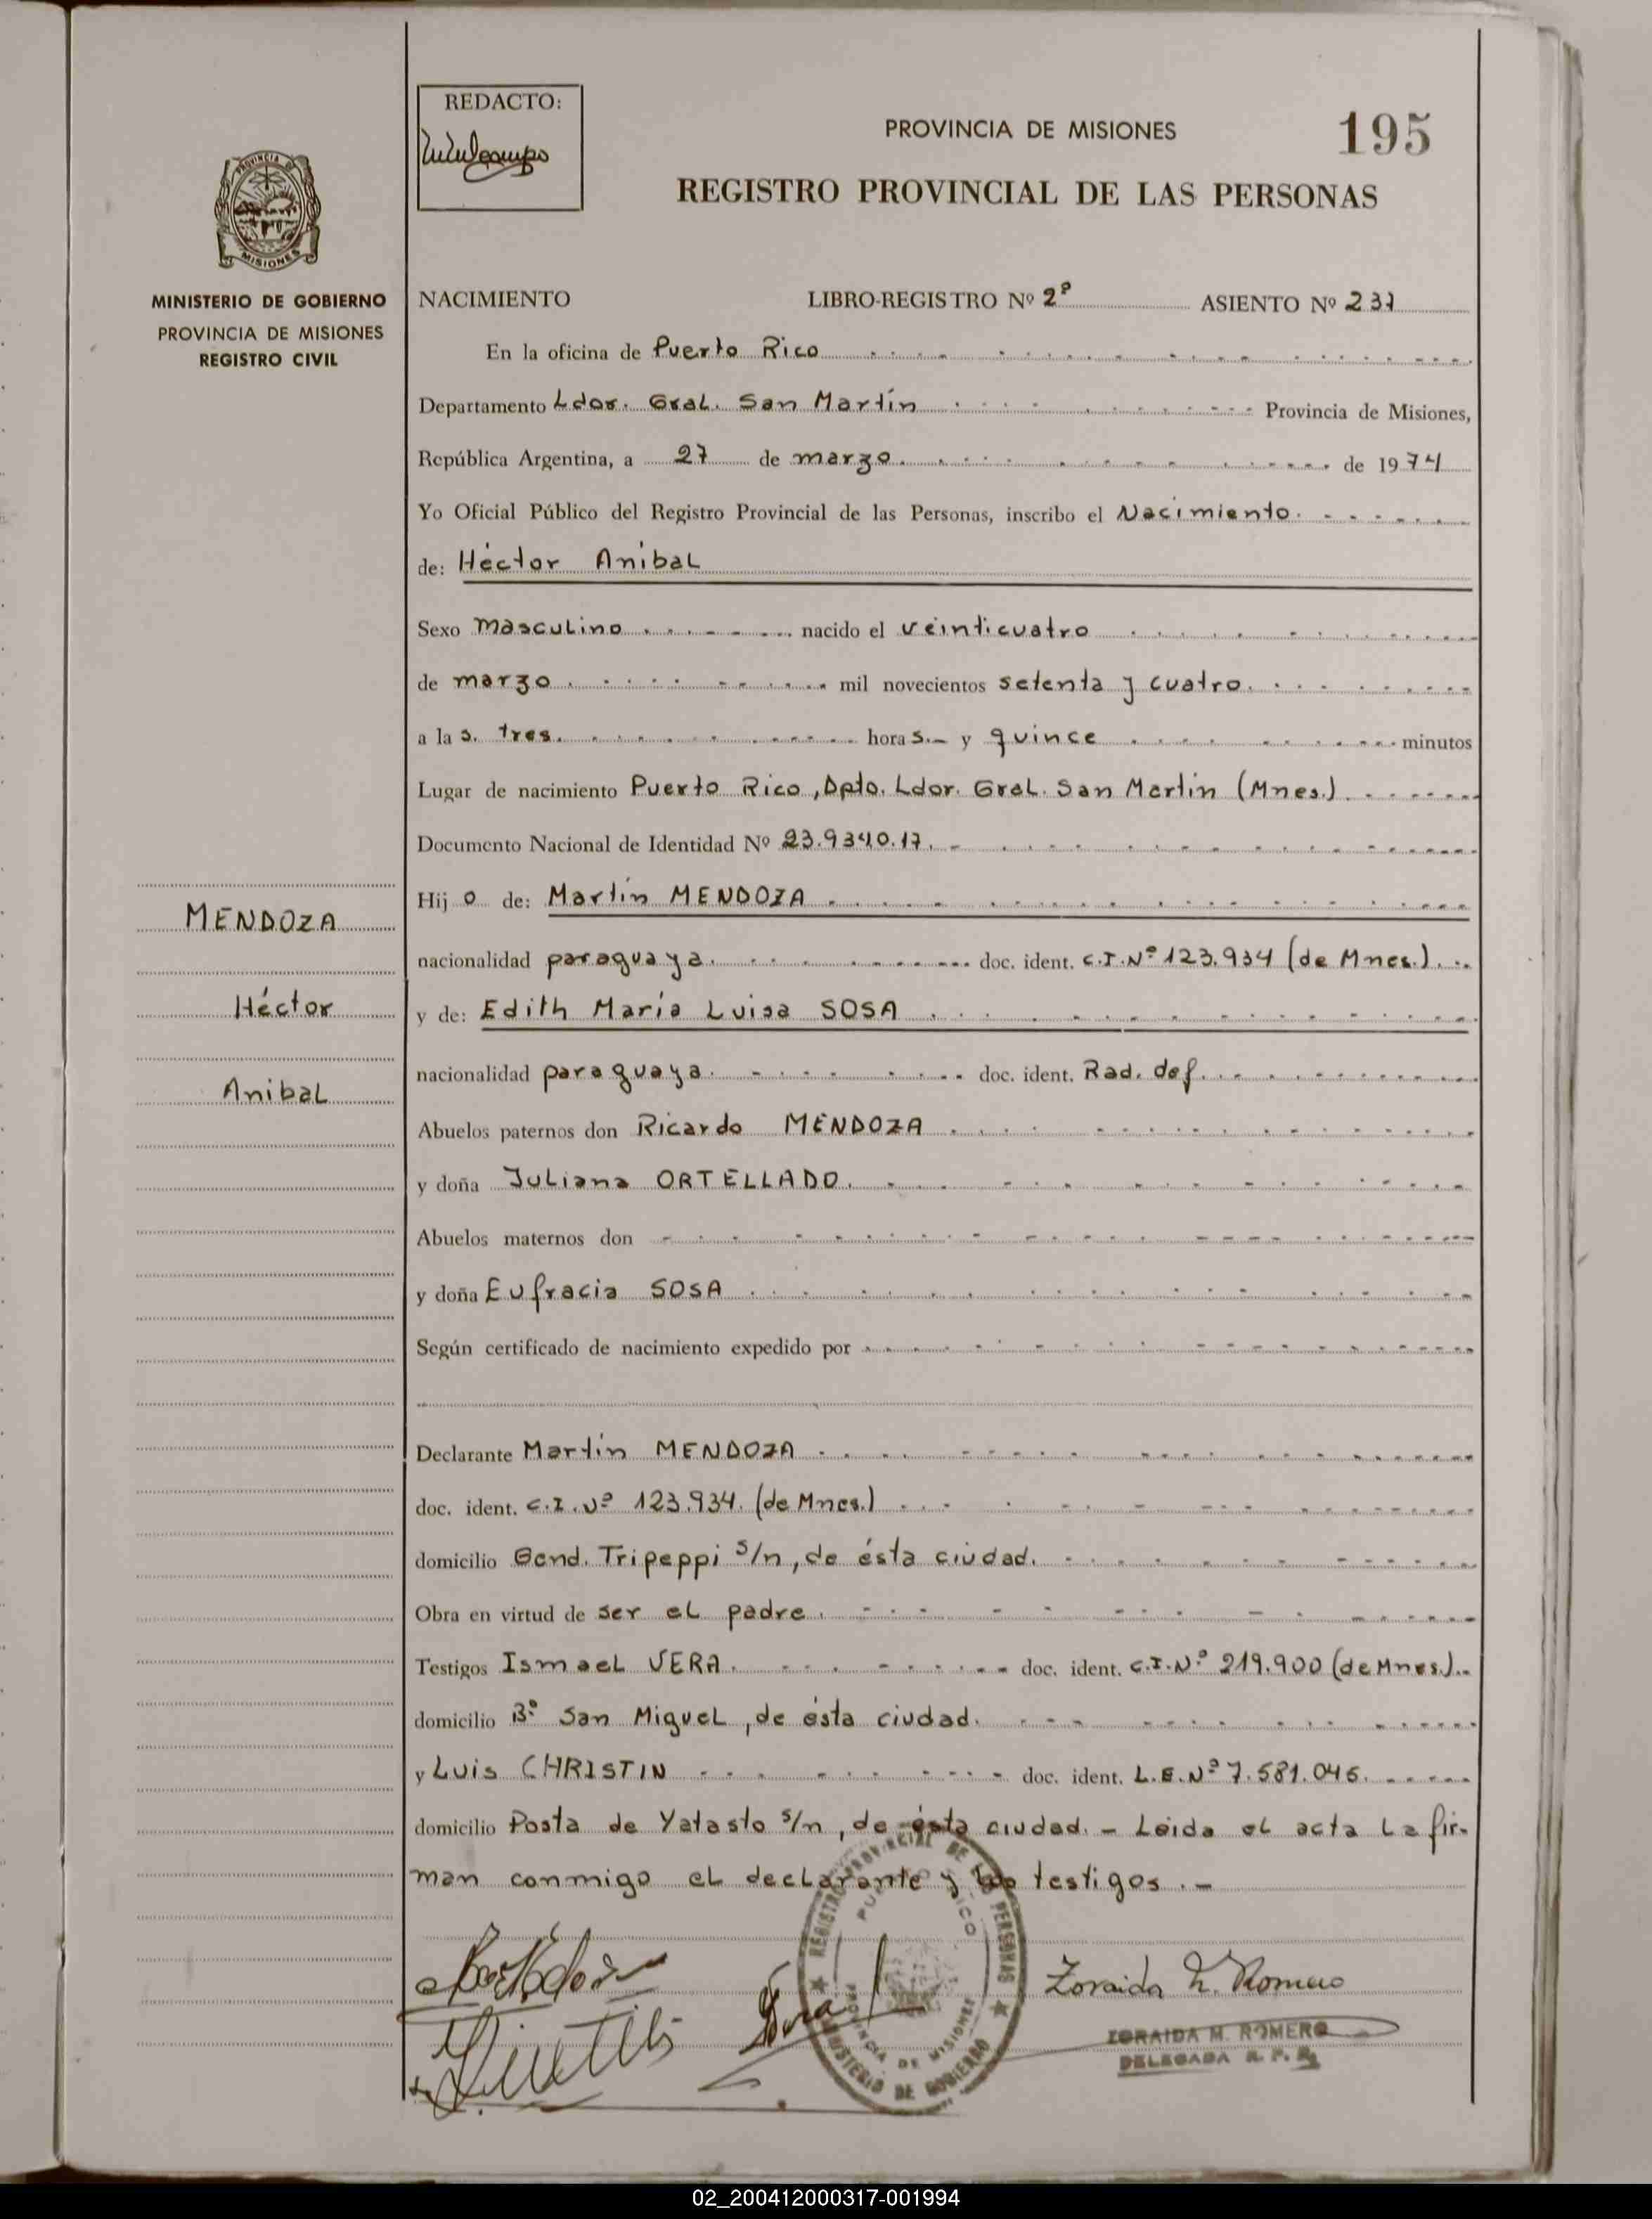 REDACTO:
PROVINCIA DE MISIONES
195
REGISTRO PROVINCIAL DE LAS PERSONAS
PROVINCIA DE
MISIONES
MINISTERIO DE GOBIERNO
PROVINCIA DE MISIONES
REGISTRO CIVIL
NACIMIENTO LIBRO-REGISTRO Nº 2º ASIENTO Nº 231
En la oficina de Puerto Rico
Departamento Ldor. Gral. San Martín Provincia de Misiones,
República Argentina, a 27 de marzo. de 1974
Yo Oficial Público del Registro Provincial de las Personas, inscribo el Nacimiento.
de: Héctor Anibal
Sexo masculino nacido el veinticuatro
de marzo mil novecientos setenta y cuatro.
a las. tres. horas.- y quince minutos
Lugar de nacimiento Puerto Rico, Dpto. Ldor. Gral. San Martín (Mnes.)
Documento Nacional de Identidad Nº 23.934.0.17.
Hijo de: Martín MENDOZA
nacionalidad paraguaya. doc. ident. C.I. Nº 123.934 (de Mnes.)
y de: Edith María Luisa SOSA
nacionalidad paraguaya. doc. ident. Rad. def.
Abuelos paternos don Ricardo MENDOZA
y doña Juliana ORTELLADO.
Abuelos maternos don
y doña Eufracia SOSA
Según certificado de nacimiento expedido por
Declarante Martín MENDOZA
doc. ident. C.I. Nº 123.934. (de Mnes.)
domicilio Gend. Tripeppi s/n, de ésta ciudad.
Obra en virtud de ser el padre.
Testigos Ismael VERA. doc. ident. C.I. Nº 219.900 (de Mnes.)
domicilio Bº San Miguel, de ésta ciudad.
y Luis CHRISTIN doc. ident. L.E. Nº 7.581.046.
domicilio Posta de Yatasto s/n, de ésta ciudad. - Leída el acta la fir-
man conmigo el declarante y los testigos. -
MENDOZA
Héctor
Anibal
REGISTRO PROVINCIAL DE LAS PERSONAS
PUERTO RICO
PROVINCIA DE MISIONES
MINISTERIO DE GOBIERNO
Vera
Zoraida M. Romero
ZORAIDA M. ROMERO
DELEGADA R. P. P.
02_200412000317-001994